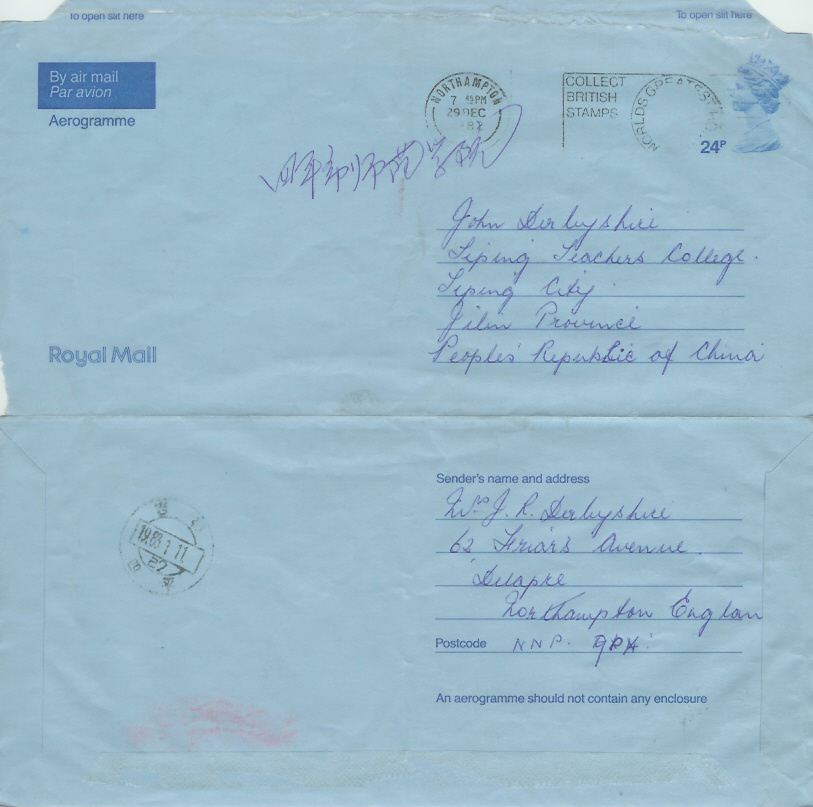 To open slit here
To open slit here
By air mail
Par avion
Aerogramme
NORTHAMPTON
7 45 PM
29 DEC
COLLECT
BRITISH
STAMPS
WORLDS GREATEST
24P
四平师范学院
John Derbyshire
Siping Teachers College.
Siping City
Jilin Province
Peoples Republic of China
Royal Mail
Sender's name and address
Mrs J. R. Derbyshire
62 Friars Avenue.
Delapre
Northampton Englan
Postcode NNP.
1983 1 11
22
An aerogramme should not contain any enclosure